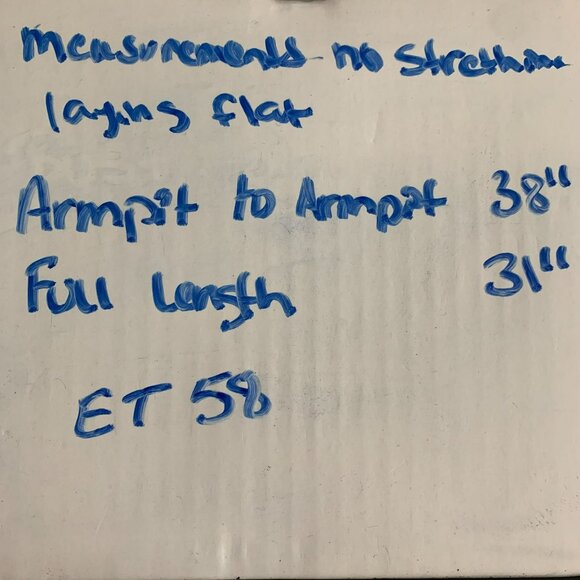 measurements no stretching
laying flat
Armpit to Armpit 38"
Full Length 31"
ET 58